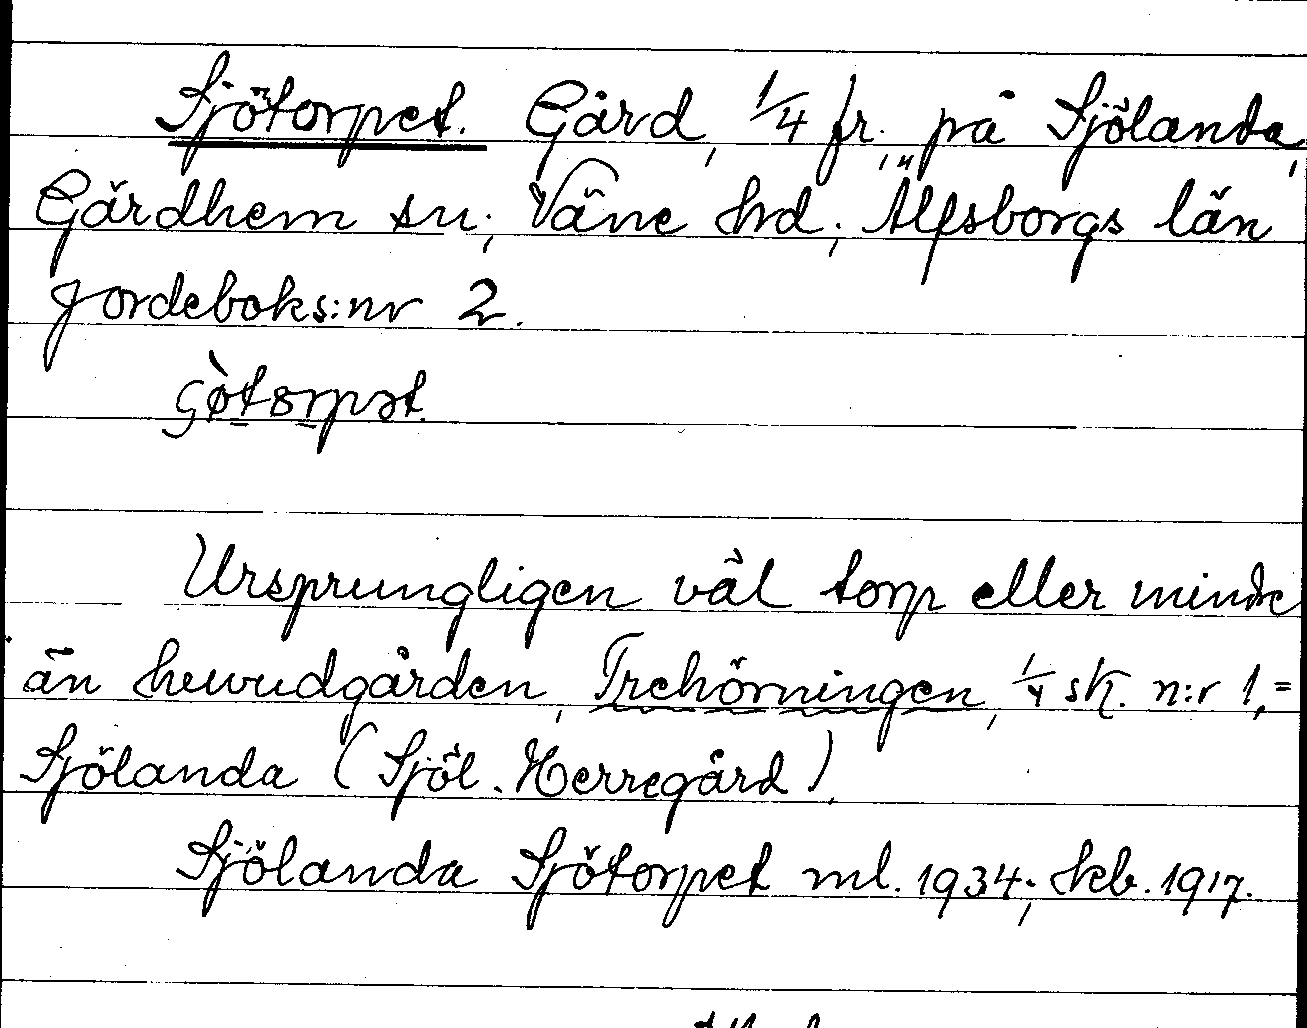 Sjötorpet. Gård, 1/4 fr. på Sjölanda,
Gärdhem sn; Väne hrd; Älfsborgs län
Jordeboks:nr 2.
Ursprungligen väl torp eller mindre
än huvudgården, Trehörningen, 1/4 sk. n:r 1, =
Sjölanda (Sjöl. Herregård).
Sjölanda Sjötorpet ml. 1934; skb. 1917.